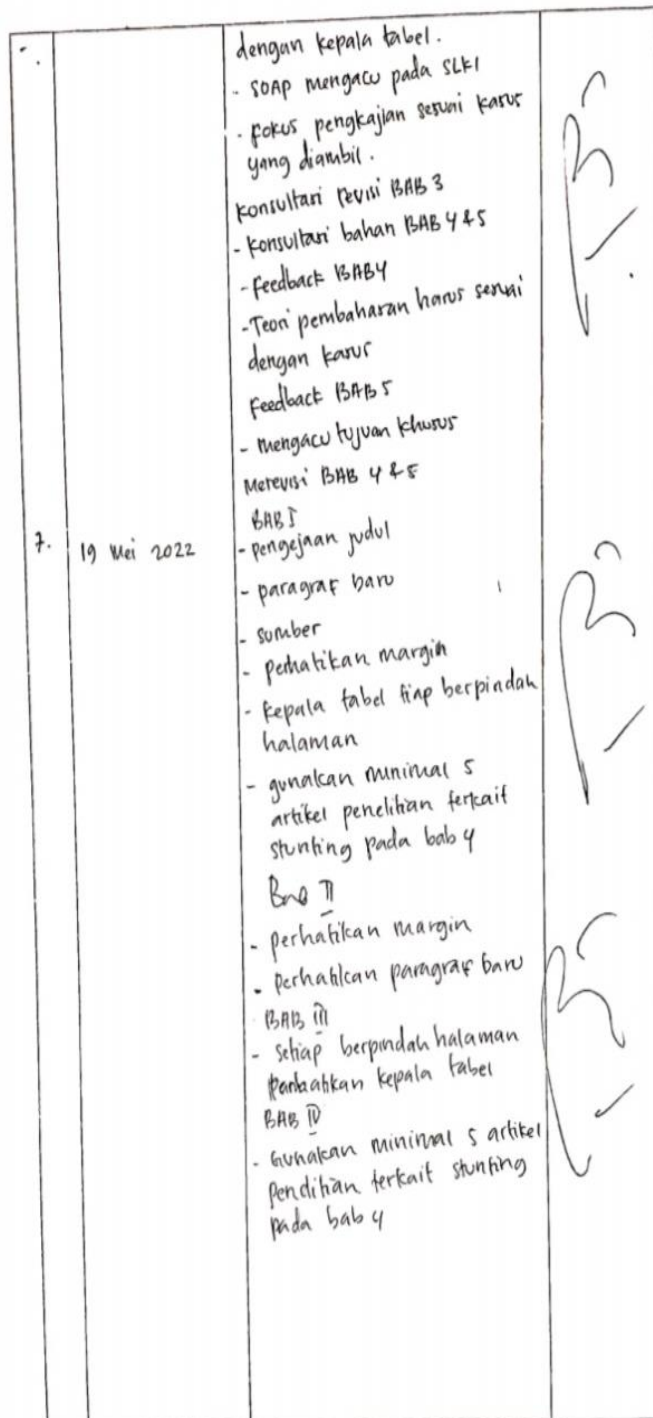 dengan kepala tabel.
- SOAP mengacu pada SLKI
- Fokus pengkajian sesuai kasus
yang diambil.
Konsultasi revisi BAB 3
- Konsultasi bahan BAB 4 & 5
- Feedback BAB 4
- Teori pembahasan harus sesuai
dengan kasus
Feedback BAB 5
- Mengacu tujuan khusus
Merevisi BAB 4 & 5
BAB I
7. 19 Mei 2022 - pengejaan judul
- paragraf baru
- sumber
- perhatikan margin
- kepala tabel tiap berpindah
halaman
- gunakan minimal 5
artikel penelitian terkait
stunting pada bab 4
Bab II
- perhatikan margin
- Perhatikan paragraf baru
BAB III
- Setiap berpindah halaman
perhatikan kepala tabel
BAB IV
- Gunakan minimal 5 artikel
penelitian terkait stunting
pada bab 4